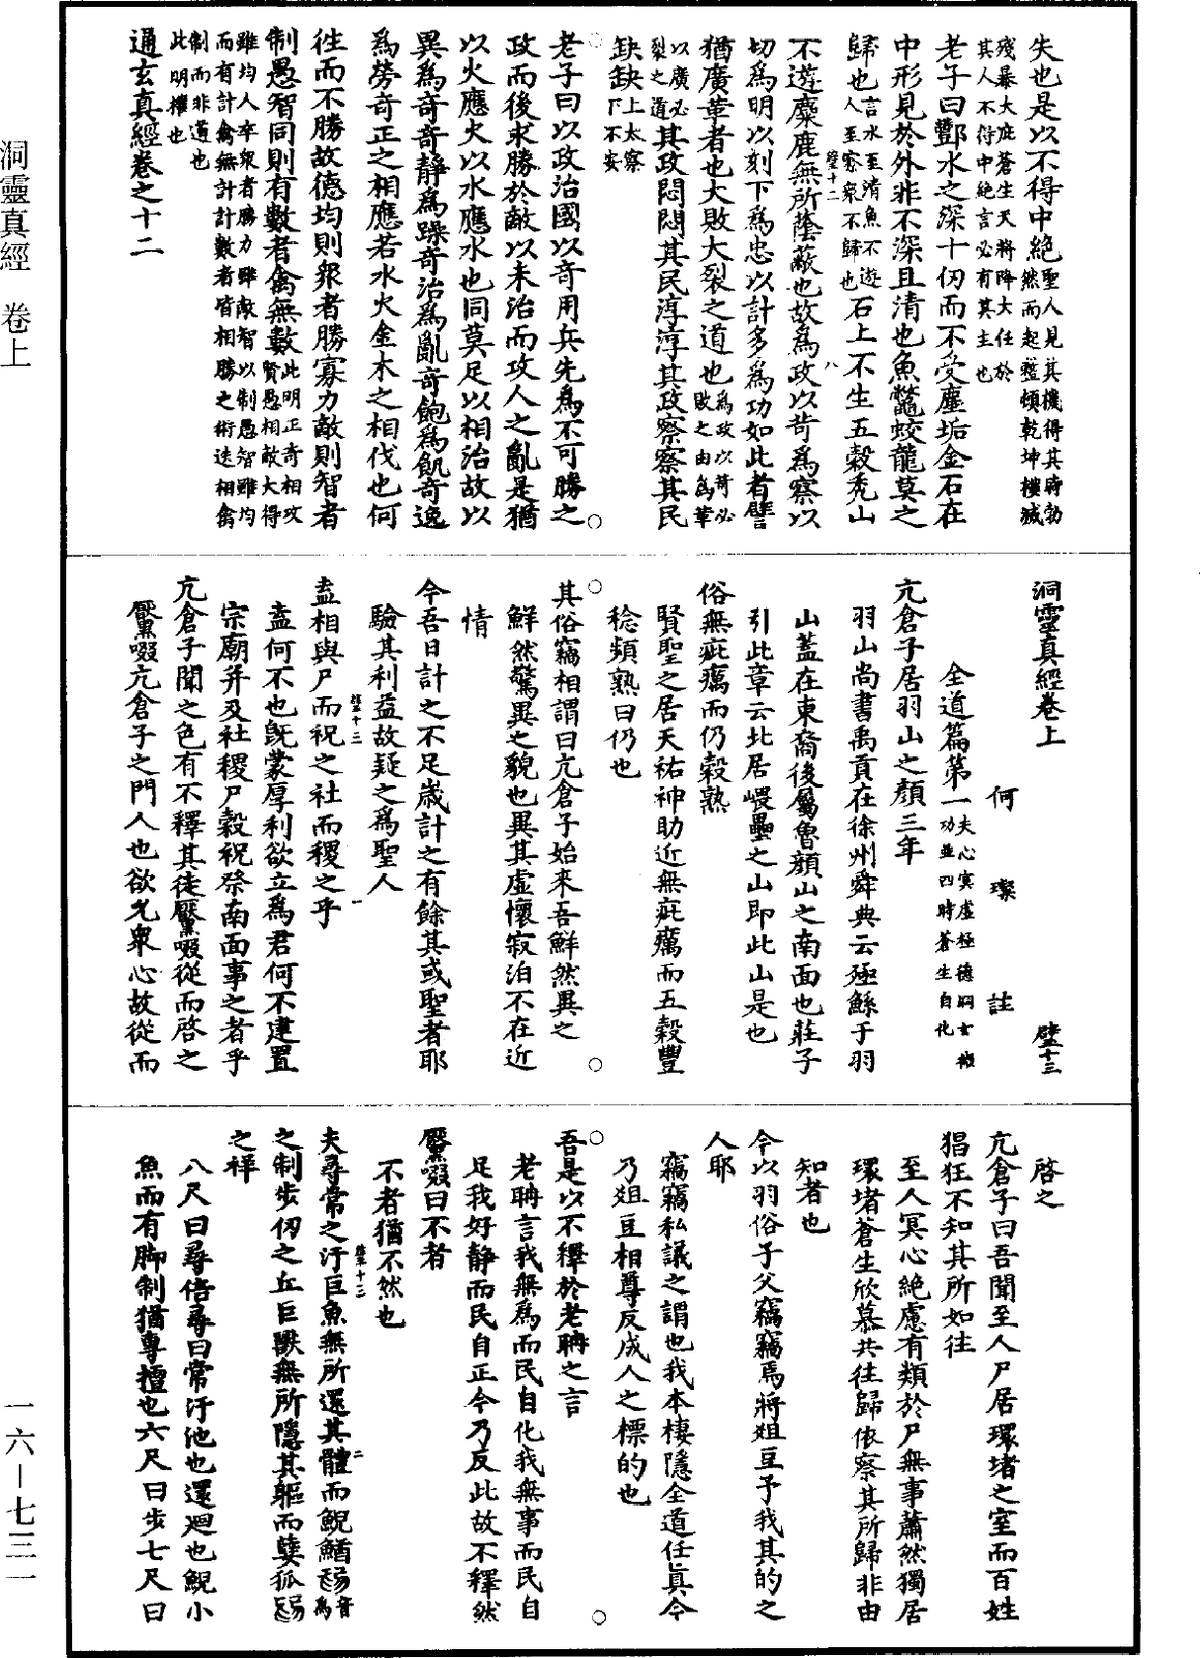 洞靈真經　卷上
失也是以不得中絶聖人見其機得其時勃
然而起整頓乾坤樸滅
殘暴大庇蒼生天將降大任於
其人不得中絶言必有其主也
老子曰酆水之深十仞而不受塵垢金石在
中形見於外非不深且清也魚鼈蛟龍莫之
歸也言水至清魚不遊
人至察衆不歸也石上不生五穀禿山
璧十二　八
不遊麋鹿無所蔭蔽也故為政以苛為察以
切為明以刻下為忠以計多為功如此者譬
猶廣革者也大敗大裂之道也為政以苛必
敗之由為革
以廣必
裂之道其政悶悶其民淳淳其政察察其民
缺缺上太察
下不安
老子曰以政治國以奇用兵先為不可勝之
政而後求勝於敵以未治而攻人之亂是猶
以火應火以水應水也同莫足以相治故以
異為奇奇靜為躁奇治為亂奇飽為飢奇逸
為勞奇正之相應若水火金木之相伐也何
往而不勝故德均則衆者勝寡力敵則智者
制愚智同則有數者禽無數此明正奇相攻
賢愚相敵大得
雖均人卒衆者勝力雖敵智以制愚智雖均
而有計禽無計計數者皆相勝之術迭相禽
制而非道也
此明權也
通玄真經卷之十二
洞靈真經卷上　璧十三
何璨註
全道篇第一夫心冥虛極德洞玄
功並四時蒼生自化
亢倉子居羽山之顏三年
羽山尚書禹貢在徐州舜典云殛鯀于羽
山蓋在東裔後屬魯顏山之南面也莊子
引此章云北居嵔壘之山即此山是也
俗無疵癘而仍穀熟
賢聖之居天祐神助近無疵癘而五穀豐
稔頻熟曰仍也
其俗竊相謂曰亢倉子始來吾鮮然異之
鮮然驚異之貌也異其虛懷寂泊不在近
情
今吾日計之不足歲計之有餘其或聖者耶
驗其利益故疑之為聖人
璧十三　一
盍相與尸而祝之社而稷之乎
盍何不也旣蒙厚利欲立為君何不建置
宗廟并及社稷尸穀祝祭南面事之者乎
亢倉子聞之色有不釋其徒𪒠啜從而啓之
𪒠啜亢倉子之門人也欲允衆心故從而
啓之
亢倉子曰吾聞至人尸居環堵之室而百姓
猖狂不知其所如往
至人冥心絶慮有類於尸無事蕭然獨居
環堵蒼生欣慕共往歸依察其所歸非由
知者也
今以羽俗子父竊竊焉將俎豆予我其的之
人耶
竊竊私議之謂也我本棲隱全道任真今
乃俎豆相尊反成人之標的也
吾是以不釋於老聃之言
老聃言我無為而民自化我無事而民自
足我好静而民自正今乃反此故不釋然
𪒠啜曰不者
不者猶不然也
璧十三　二
夫尋常之汙巨魚無所還其體而鯢鰌為
之制步仞之丘巨獸無所隱其軀而㜸狐
之祥
八尺曰尋倍尋曰常汙池也還廻也鯢小
魚而有脚制猶專擅也六尺曰步七尺曰
一六—七三一